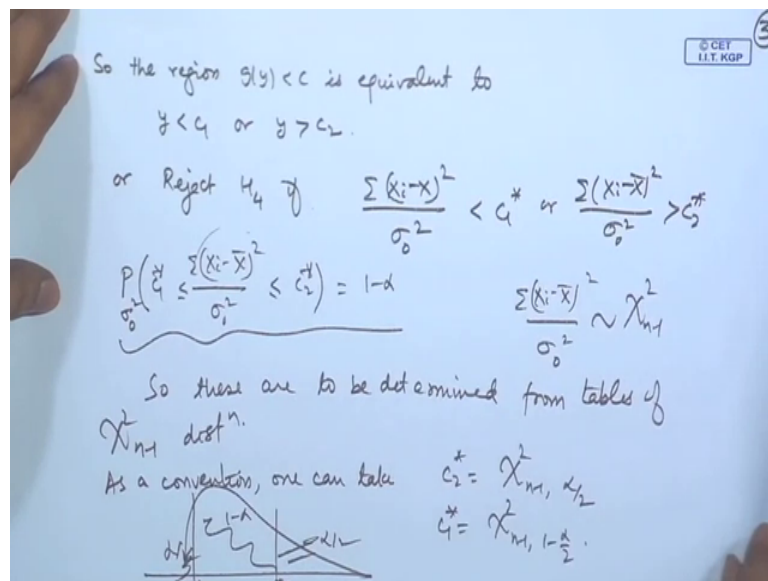 3
© CET
I.I.T. KGP
So the region g(y) < c is equivalent to
y < c₁ or y > c₂.
or Reject H₄ if Σ(Xi-X)²/σ₀² < c₁* or Σ(Xi-X̄)²/σ₀² > c₂*
P_σ₀²(c₁* ≤ Σ(Xi-X̄)²/σ₀² ≤ c₂*) = 1-α
Σ(Xi-X̄)²/σ₀² ~ χ²ₙ₋₁
So these are to be determined from tables of
χ²ₙ₋₁ distⁿ.
As a convention, one can take c₂* = χ²ₙ₋₁, α/2
c₁* = χ²ₙ₋₁, 1-α/2.
1-α
α/2
α/2